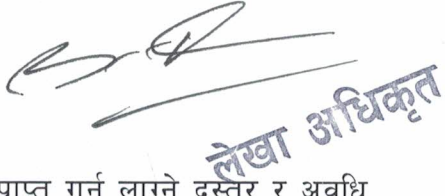 लेखा अधिकृत
प्राप्त गर्न लाग्ने दस्तुर र अवधि